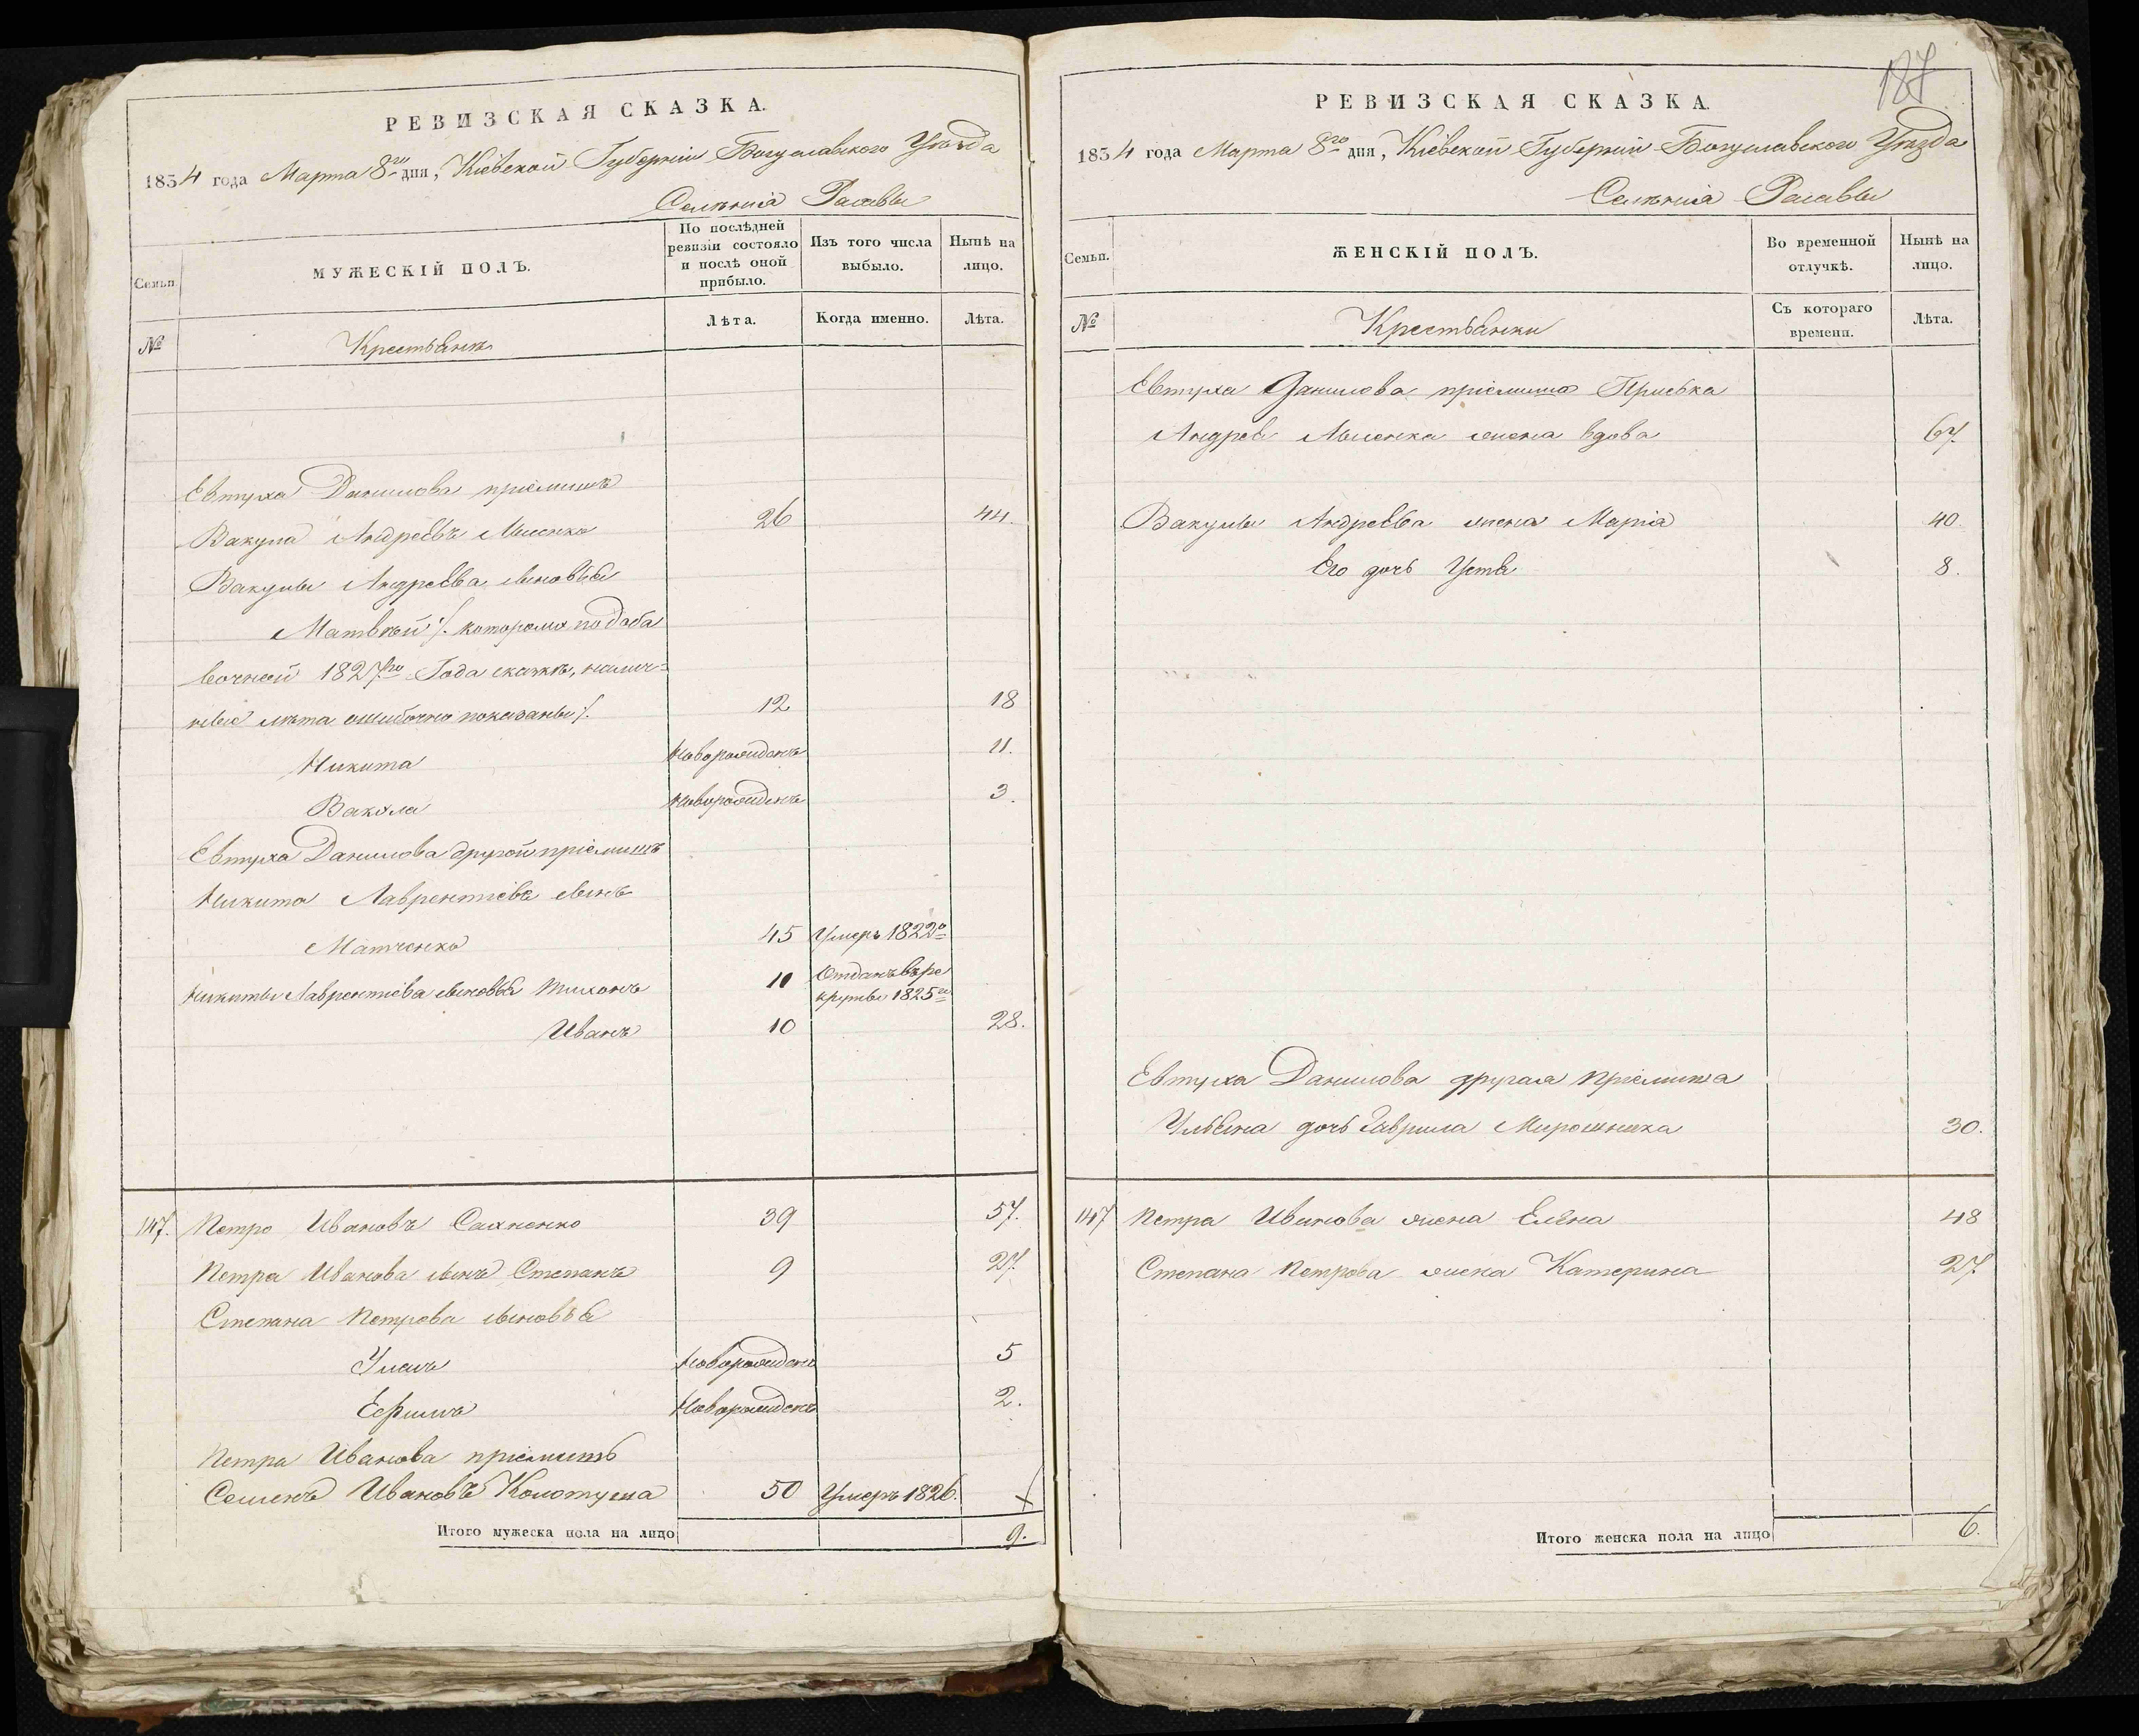 РЕВИЗСКАЯ СКАЗКА.
1834 года Марта 8го дня, Кіевской Губерніи Богуславского Уѣзда
Селѣнія Расавы
Семьи.
МУЖЕСКІЙ ПОЛЪ.
По послѣдней ревизіи состояло и послѣ оной прибыло.
Изъ того числа выбыло.
Нынѣ на лицо.
№
Крестьянъ
Лѣта.
Когда именно.
Лѣта.
Евтуха Данилова пріемишъ
Вакула Андреевъ 26 44.
Вакулы Андреева сыновья
Матвѣй ·/. которому по доба
вочной 1827го Года сказкѣ, налич=
ные лѣта ошибочно показаны ·/. 12 18
Никита Новорожденъ 11.
Вакула Новорожденъ 3.
Евтуха Данилова другой пріемишъ
Никита Лаврентіевъ сынъ
Матченко 45 Умеръ 1822го
Никиты Лаврентіева сыновья Тихонъ 11 Отданъ въ ре
круты 1825го
Иванъ 10 28.
147. Петро Ивановъ Сахненко 39 57.
Петра Иванова сынъ Степанъ 9 27.
Степана Петрова сыновья
Новорожденъ 5
Ефимъ Новорожденъ 2.
Петра Иванова пріемишъ
Семенъ Ивановъ Колотуша 50 Умеръ 1826.
Итого мужеска пола на лицо 9.
187
РЕВИЗСКАЯ СКАЗКА.
1834 года Марта 8го дня, Кіевской Губерніи Богуславского Уѣзда
Селѣнія Расавы
Семьи.
ЖЕНСКІЙ ПОЛЪ.
Во временной отлучкѣ.
Нынѣ на лицо.
№
Крестьянки
Съ котораго времени.
Лѣта.
Евтуха Данилова пріемиша Приська
Андрея жена вдова 67.
Вакулы Андреева жена Марія 40.
Его дочь Устя 8.
Евтуха Данилова другая пріемиша
Ульяна дочь Гаврила Мирошника 30.
147 Петра Иванова жена Елена 48
Степана Петрова жена Катерина 27
Итого женска пола на лицо 6.